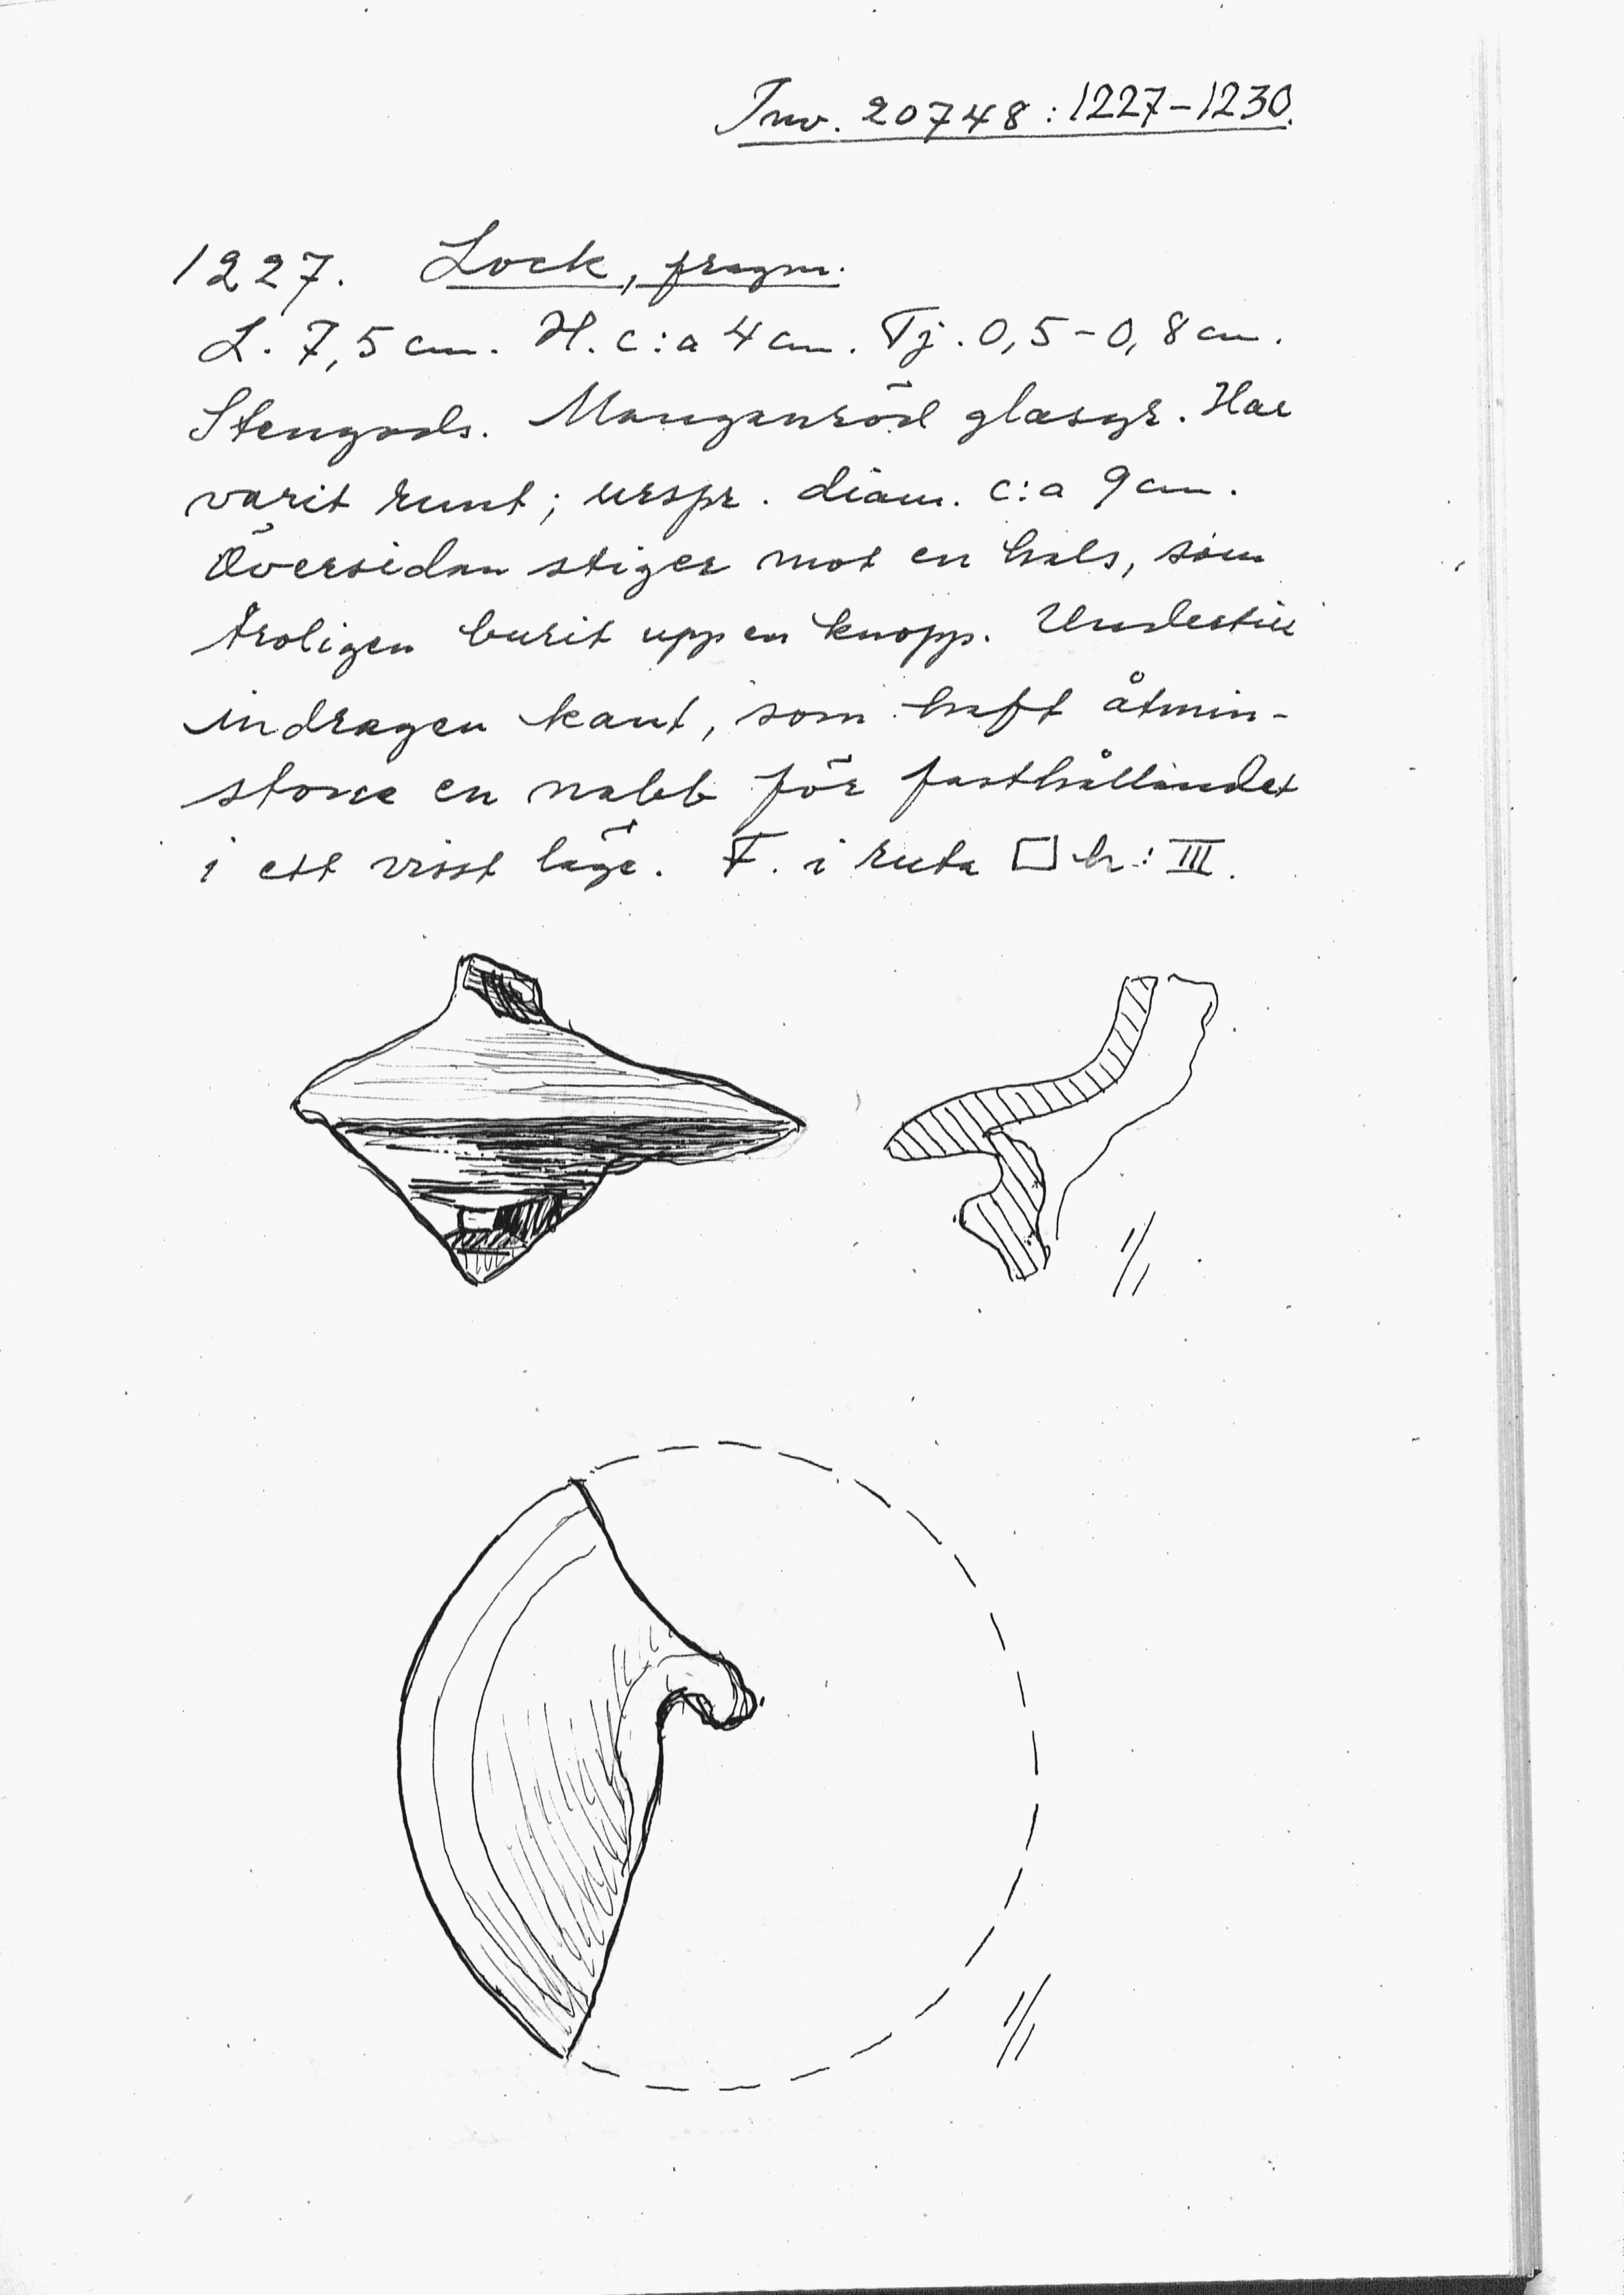 Inv. 20748:1227-1230.
1227. Lock, fragm.
L. 7,5 cm. H. c:a 4 cm. Tj. 0,5-0,8 cm.
Stengods. Manganröd glasyr. Har
varit runt; urspr. diam. c:a 9 cm.
Översidan stiger mot en hals, som
troligen burit upp en knopp. Undertill
indragen kant, som haft åtmin-
stone en nabb för fasthållandet
i ett visst läge. F. i ruta □ h: III.
1/1
1/1